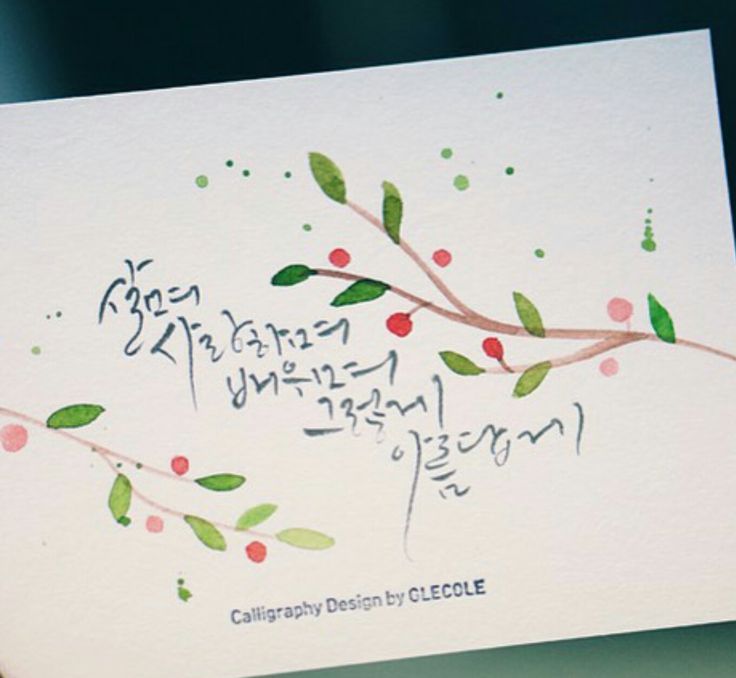 살며
사랑하며
배우며
그렇게
아름답게
Calligraphy Design by GLECOLE